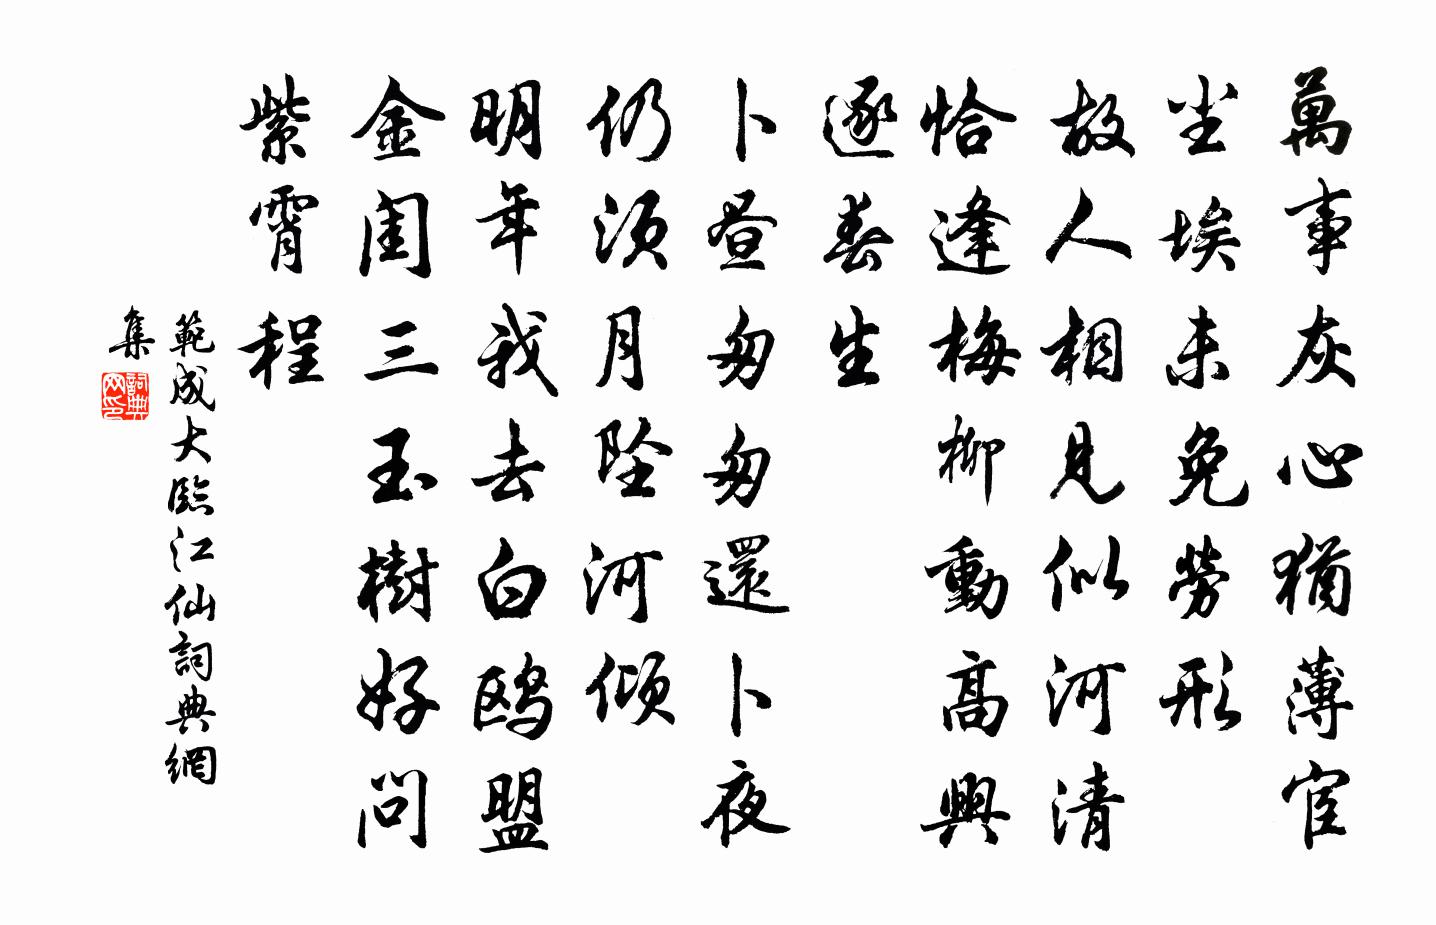 萬事灰心猶薄宦
尘埃未免勞形
故人相見似河清
恰逢梅柳動高興
逐春生
卜昼匆匆還卜夜
仍須月坠河傾
明年我去白鸥盟
金闺三玉樹好问
紫霄程
範成大臨江仙詞典網
集
詞典网印